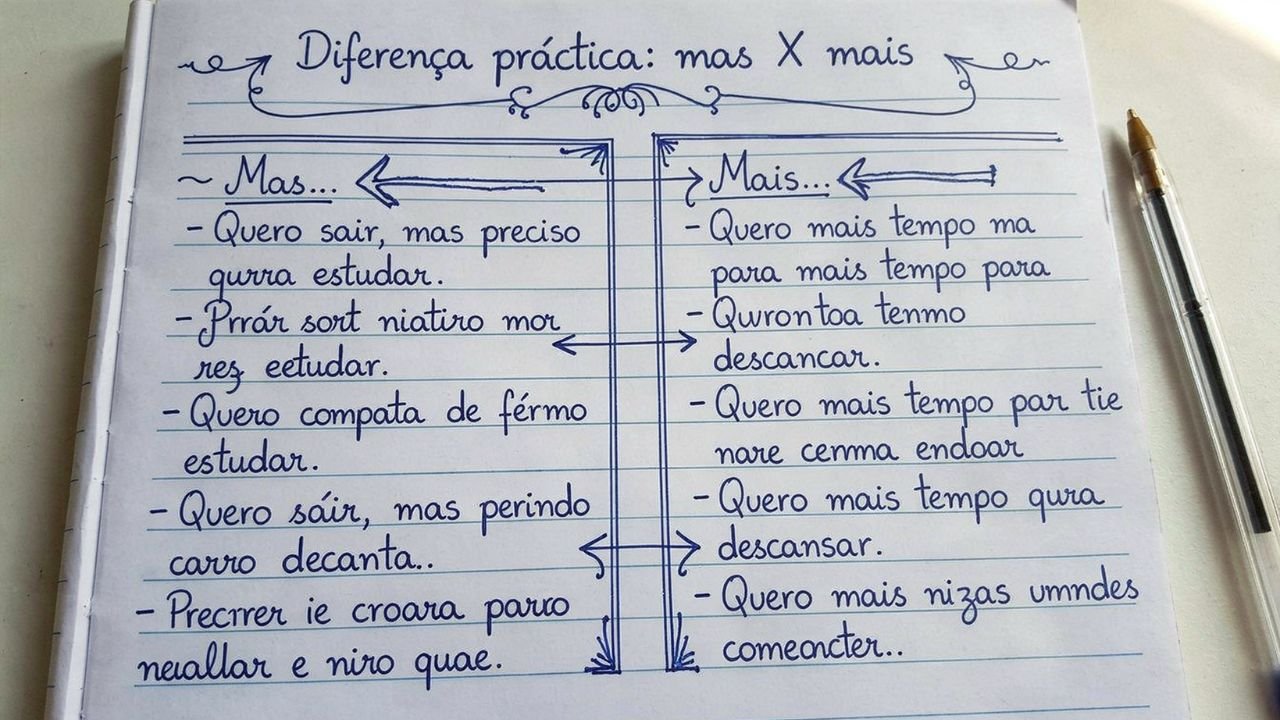 Diferença práctica: mas X mais
~ Mas...
- Quero sair, mas preciso
qurra estudar.
- Prrár sort niatiro mor
rez eetudar.
- Quero compata de férmo
estudar.
- Quero sáir, mas perindo
carro decanta..
- Precrrer ie croara parro
neuallar e niro quae.
Mais...
- Quero mais tempo ma
para mais tempo para
- Qwrontoa tenmo
descancar.
- Quero mais tempo par tie
nare cemma endoar
- Quero mais tempo qura
descansar.
- Quero mais nizas umndes
comeoncter..